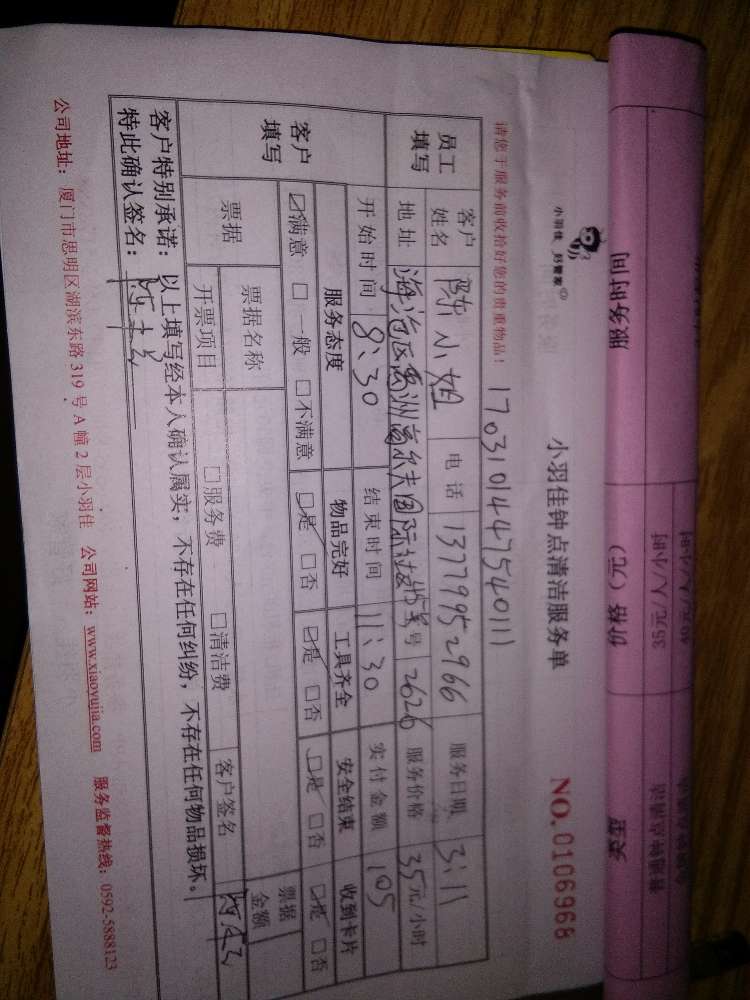 小羽佳 好管家
小羽佳钟点清洁服务单
NO. 0106968
请您于服务前收拾好您的贵重物品！ 1703101447540111
员工填写 客户姓名 陈小姐 电话 13779952966 服务日期 3.11
地址 海沧区禹洲高尔夫国际社区 号 2626 服务价格 35元/小时
客户填写 开始时间 8:30 结束时间 11:30 实付金额 105
服务态度 物品完好 工具齐全 安全结束 收到卡片
☑满意 □一般 □不满意 ☑是 □否 ☑是 □否 ☑是 □否 ☑是 □否
票据 票据名称 票据金额
开票项目 □服务费 □清洁费 客户签名
客户特别承诺：以上填写经本人确认属实，不存在任何纠纷，不存在任何物品损坏。
特此确认签名：
公司地址：厦门市思明区湖滨东路319号A幢2层小羽佳 公司网站：www.xiaoyujia.com 服务监督热线：0592-5888123
服务时间 价格（元） 类型
35元/人/小时
40元/人/小时